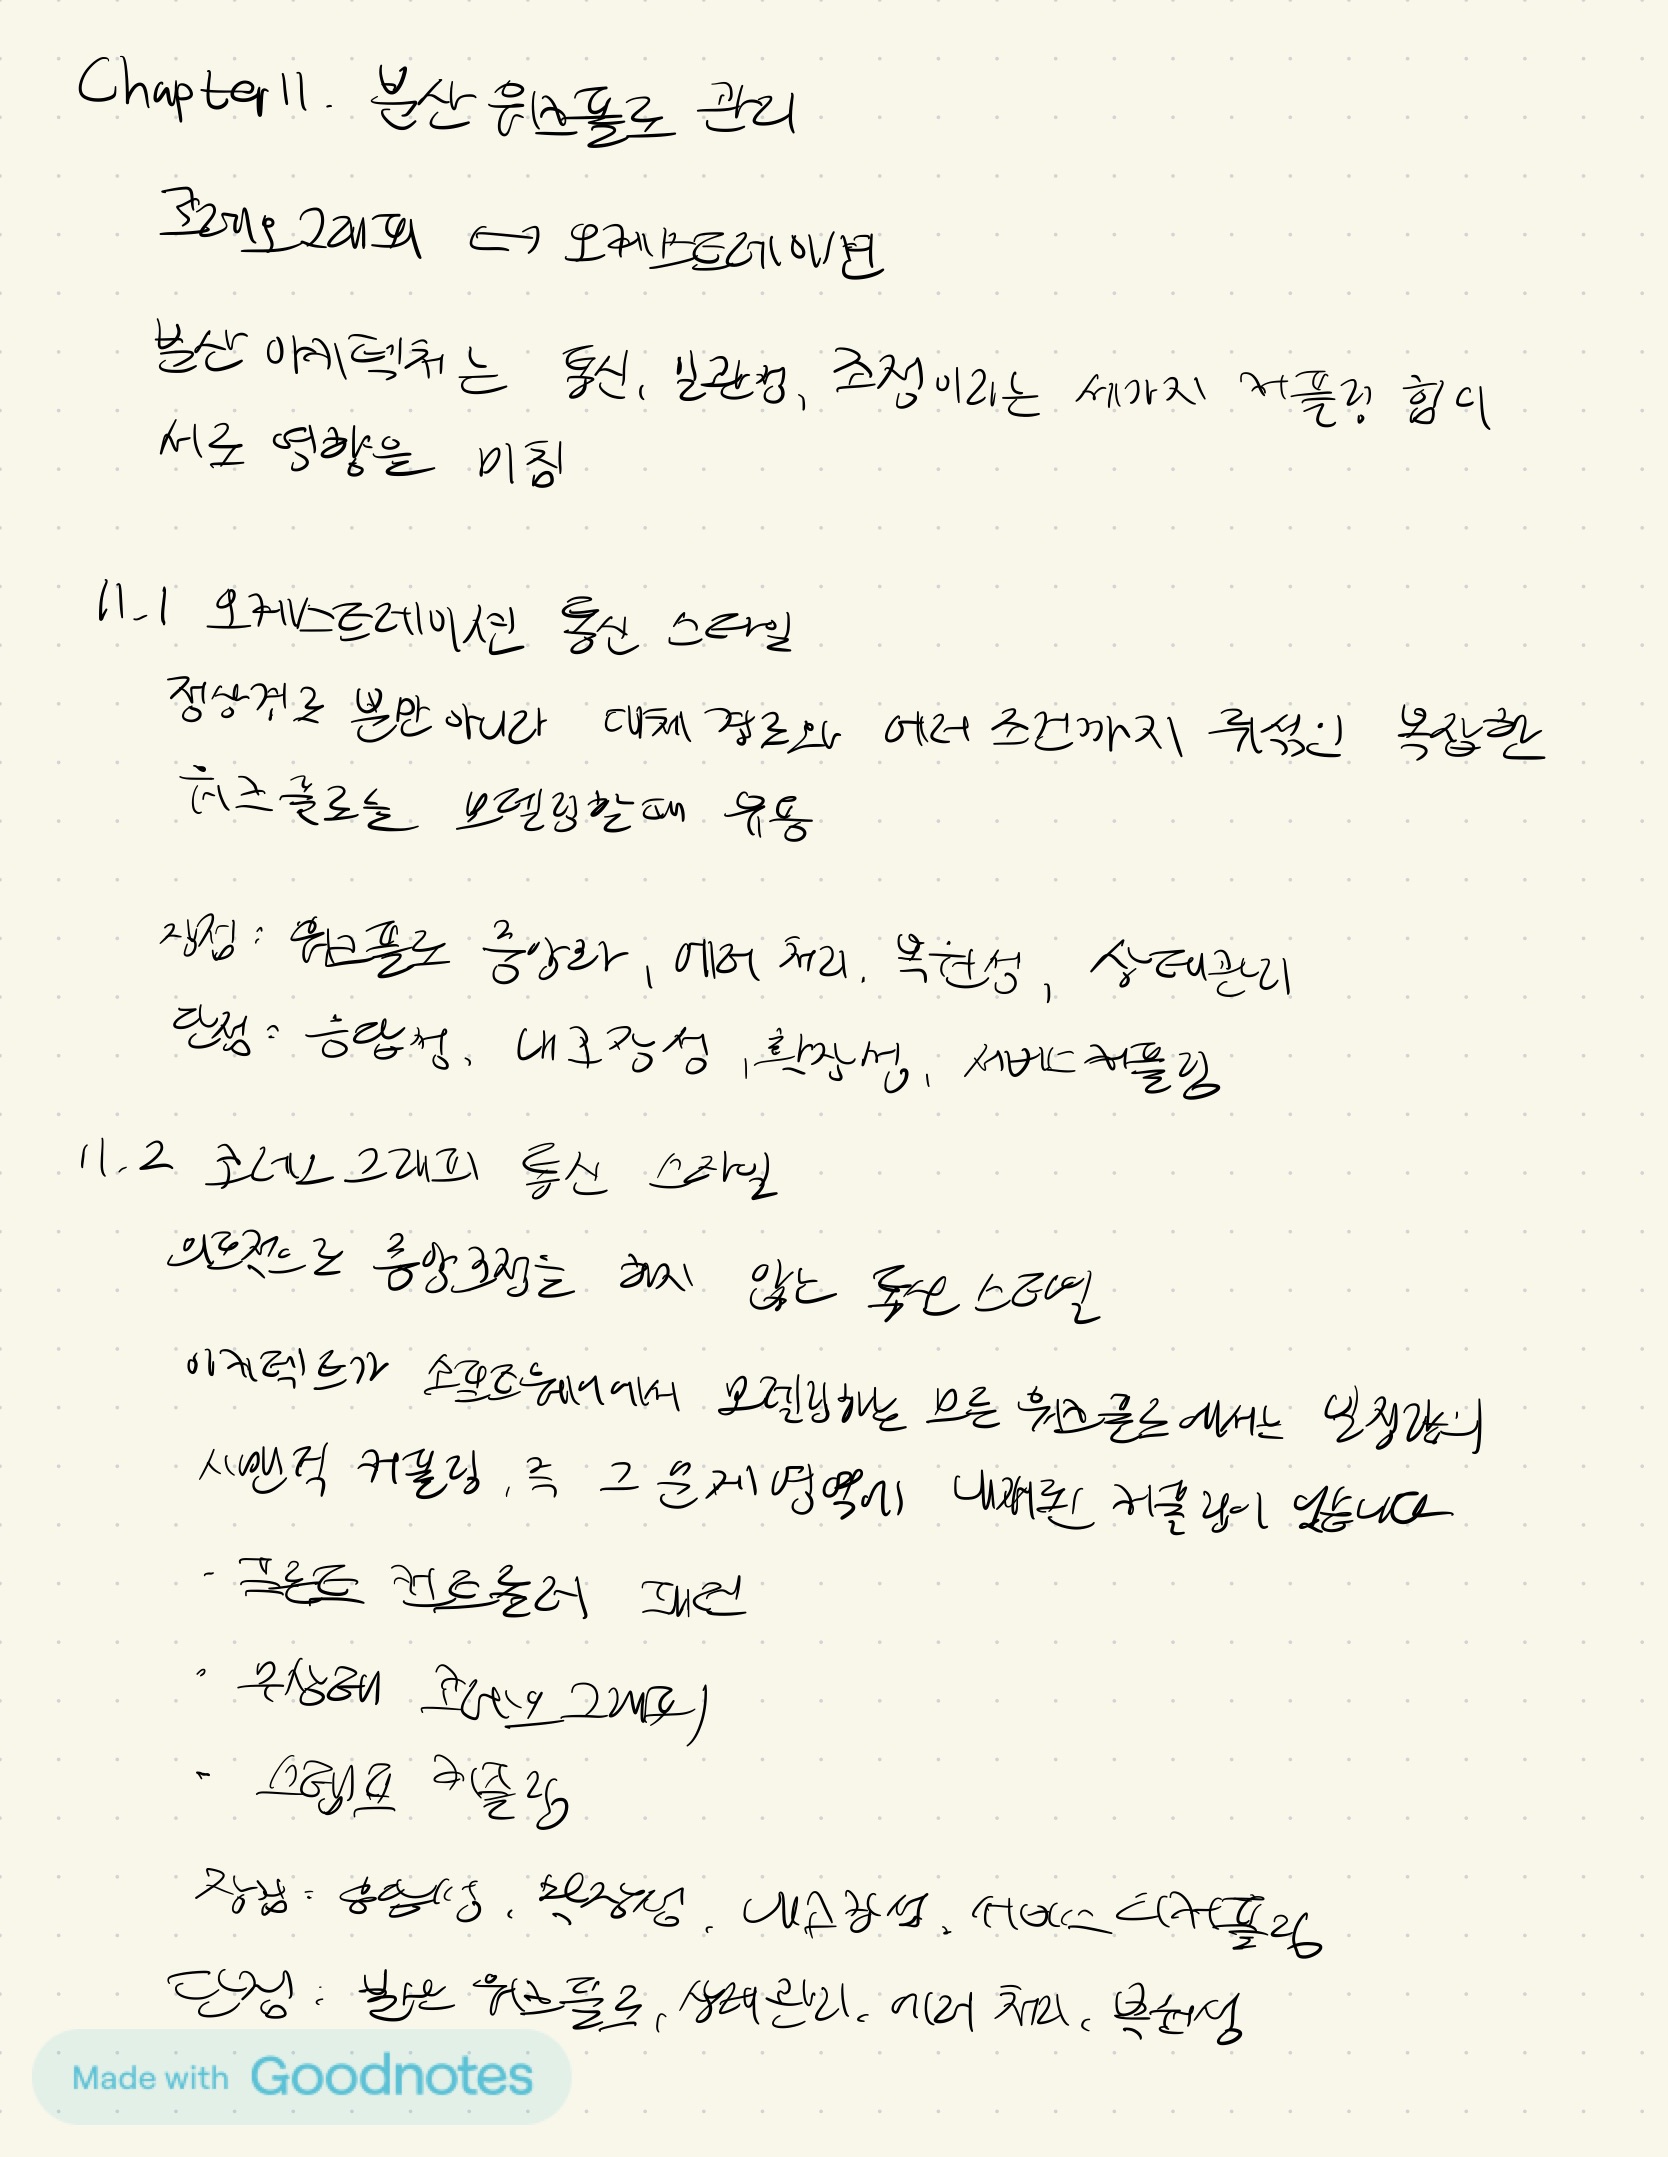 Chapter 11. 분산 워크플로 관리
코레오그래피 ↔ 오케스트레이션
분산 아키텍처는 통신, 일관성, 조정이라는 세가지 커플링 힘이
서로 영향을 미침
11.1 오케스트레이션 통신 스타일
정상경로 뿐만 아니라 대체 경로와 에러 조건까지 뒤섞인 복잡한
워크플로를 모델링할 때 유용
장점 : 워크플로 중앙화, 에러 처리, 복원성, 상태관리
단점 : 응답성, 내고장성, 확장성, 서비스 커플링
11.2 코레오그래피 통신 스타일
의도적으로 중앙조정을 하지 않는 통신 스타일
아키텍트가 소프트웨어에서 모델링하는 모든 워크플로에서는 일정량의
시맨틱 커플링, 즉 그 문제 영역에 내재된 커플링이 있습니다
- 프론트 컨트롤러 패턴
- 무상태 코레오그래피
- 스탬프 커플링
장점 : 응답성, 확장성, 내고장성, 서비스 디커플링
단점 : 분산 워크플로, 상태관리, 에러 처리, 복원성
Made with Goodnotes